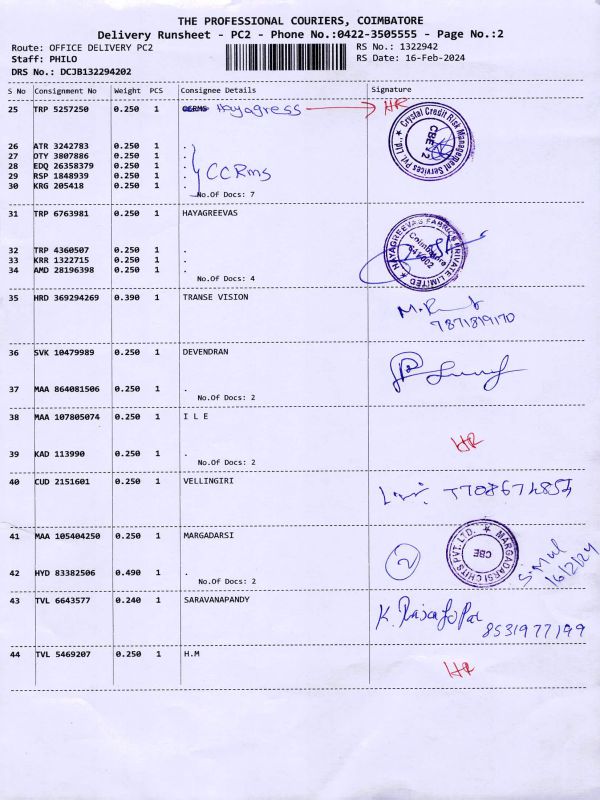 THE PROFESSIONAL COURIERS, COIMBATORE
Delivery Runsheet - PC2 - Phone No.:0422-3505555 - Page No.:2
Route: OFFICE DELIVERY PC2 RS No.: 1322942
Staff: PHILO RS Date: 16-Feb-2024
DRS No.: DCJB132294202
S No Consignment No Weight PCS Consignee Details Signature
25 TRP 5257250 0.250 1 Hayagress HR
Crystal Credit Risk Management Services Pvt. Ltd., CBE
26 ATR 3242783 0.250 1 .
27 DTY 3807886 0.250 1 .
28 EDQ 26358379 0.250 1 .
29 RSP 1848939 0.250 1 . CCRms
30 KRG 205418 0.250 1 .
No.Of Docs: 7
31 TRP 6763981 0.250 1 HAYAGREEVAS
HAYAGREEVAS FABRICS PRIVATE LIMITED Coimbatore
32 TRP 4360507 0.250 1 .
33 KRR 1322715 0.250 1 .
34 AMD 28196398 0.250 1 .
No.Of Docs: 4
35 HRD 369294269 0.390 1 TRANSE VISION
7871819170
36 SVK 10479989 0.250 1 DEVENDRAN
37 MAA 864081506 0.250 1 .
No.Of Docs: 2
38 MAA 107805074 0.250 1 I L E
HR
39 KAD 113990 0.250 1 .
No.Of Docs: 2
40 CUD 2151601 0.250 1 VELLINGIRI
41 MAA 105404250 0.250 1 MARGADARSI
MARGADARSI CHITS PVT. LTD. CBE
2
16/2/24
42 HYD 83382506 0.490 1 .
No.Of Docs: 2
43 TVL 6643577 0.240 1 SARAVANAPANDY
8531977199
44 TVL 5469207 0.250 1 H.M
HR